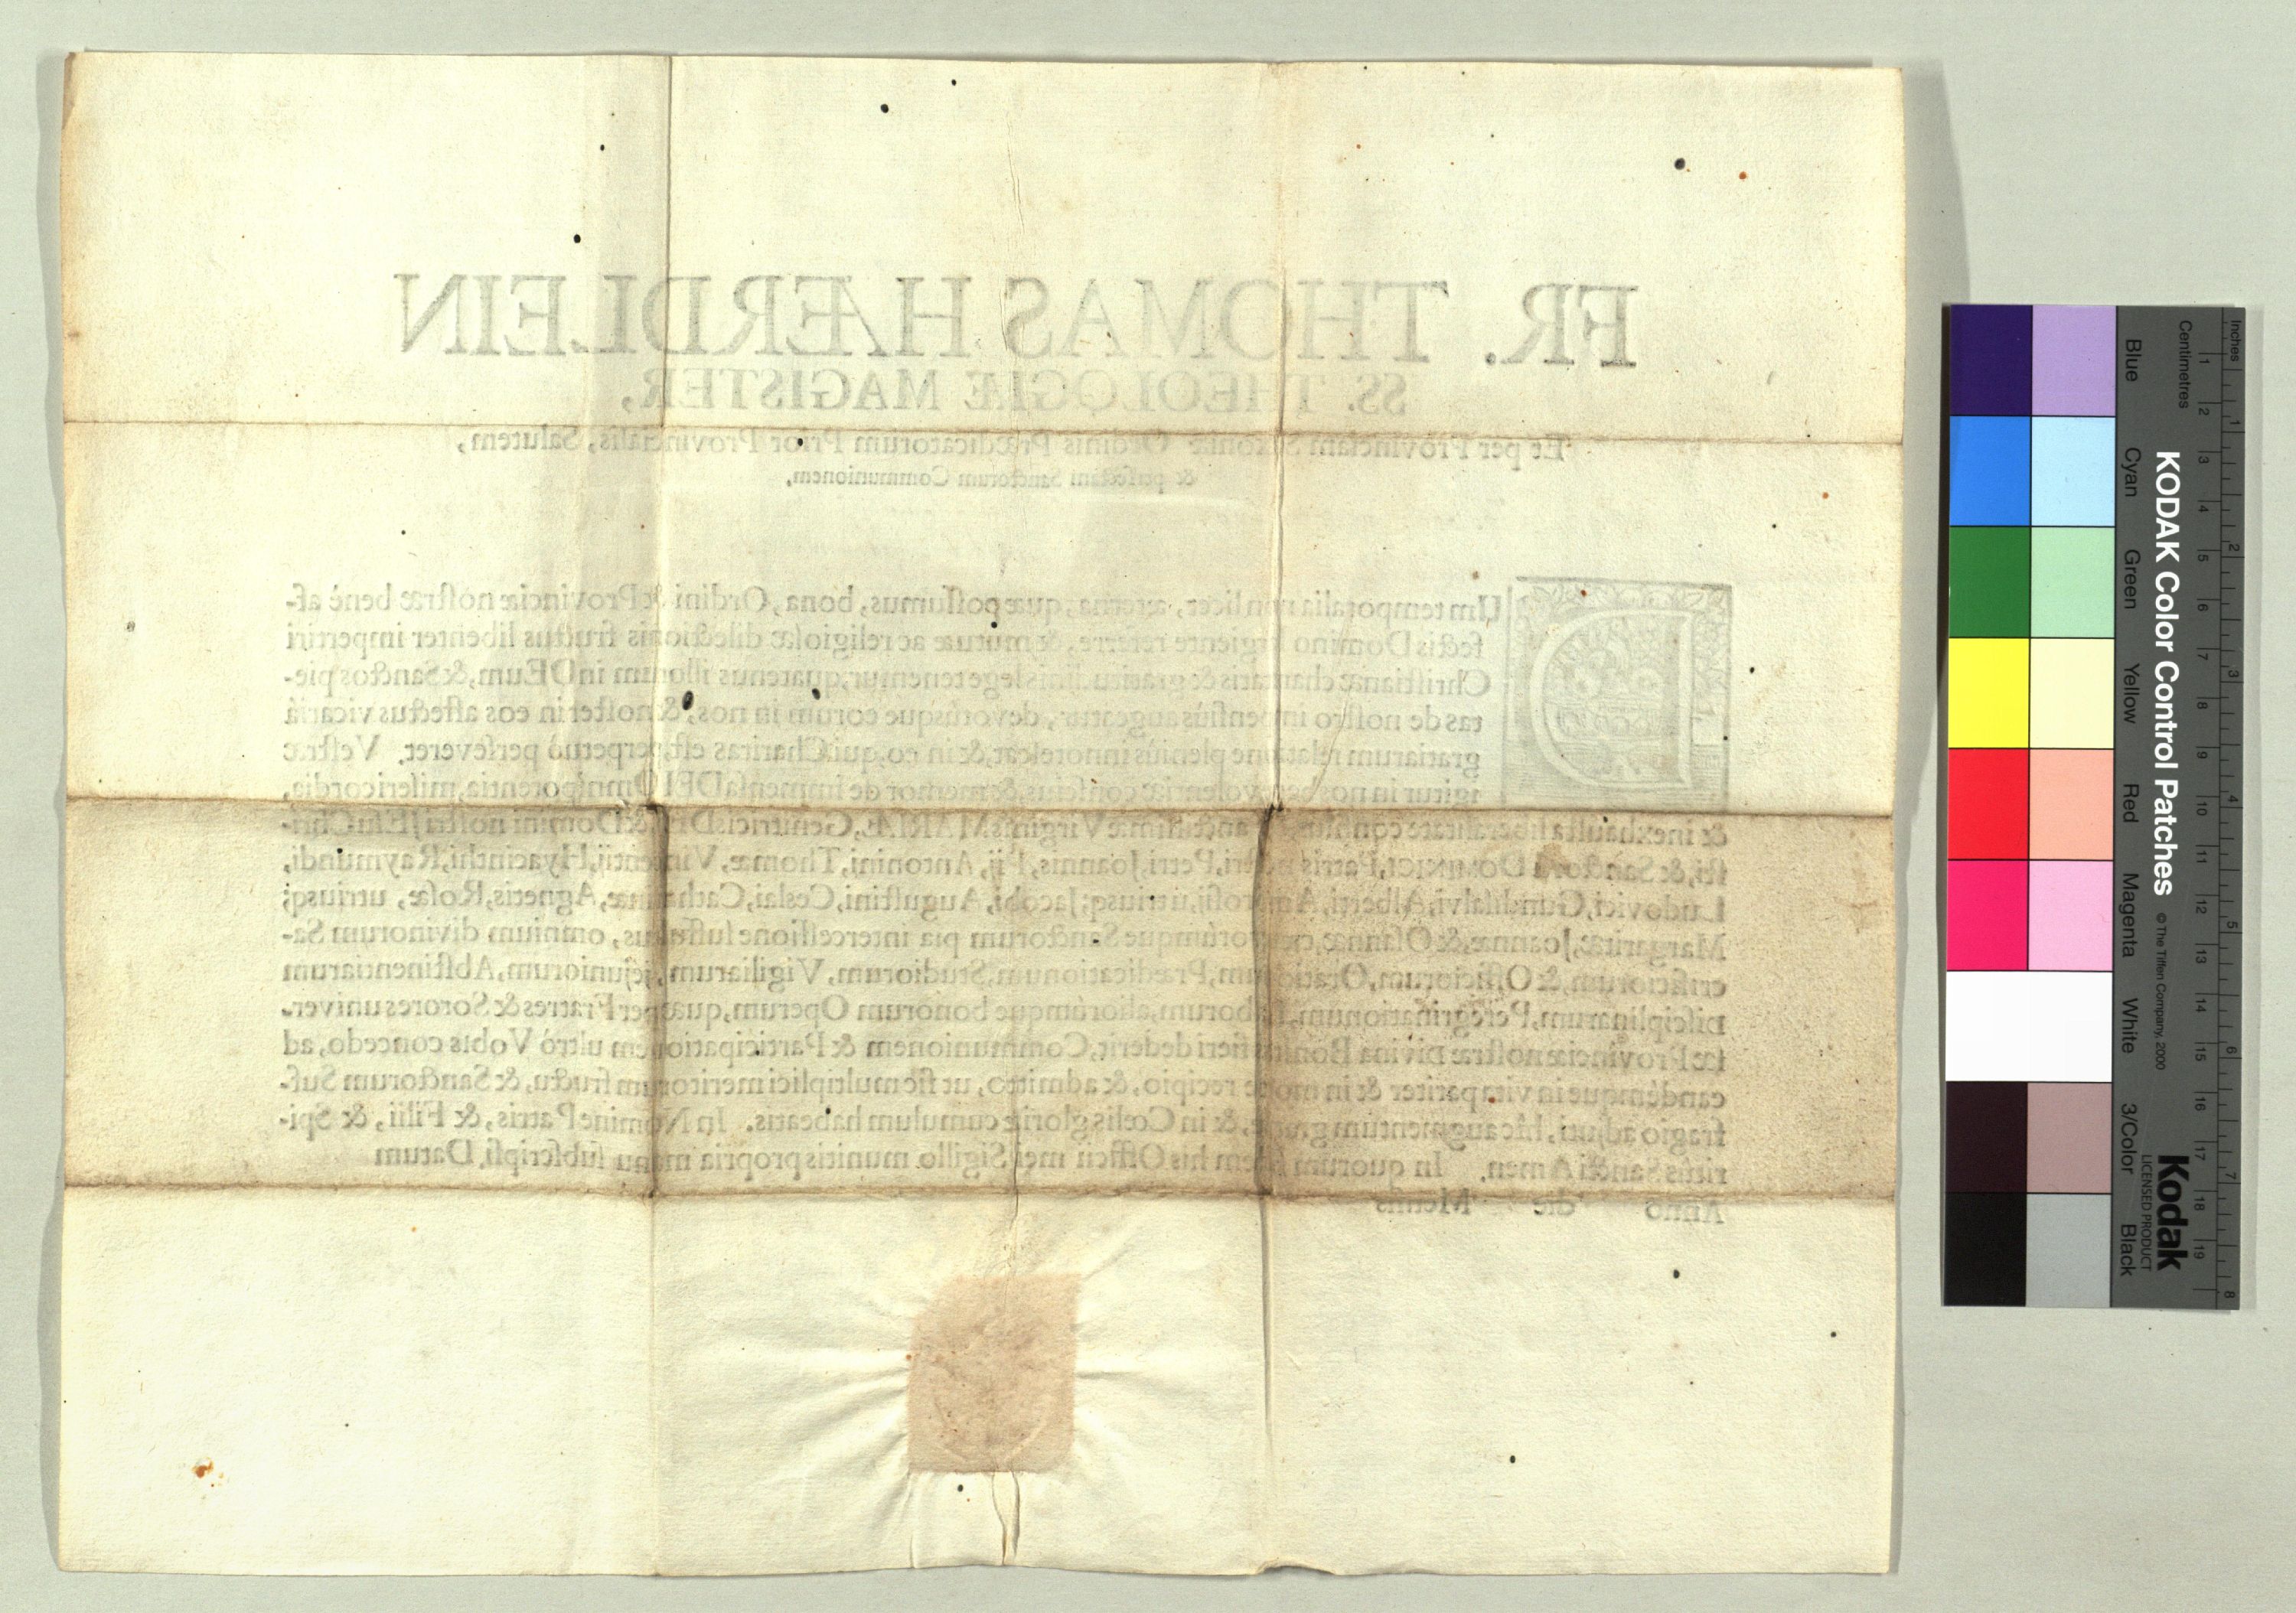 FR. THOMAS HÆRDLEIN
SS. THEOLOGIÆ MAGISTER,
Et per Provinciam Saxoniæ Ordinis Prædicatorum Prior Provincialis, Salutem,
& perfectam Sanctorum Communionem.
CUm temporalia non licet, æterna, quæ possumus, bona, Ordini & Provinciæ nostræ benè af-
fectis Domino largiente referre, & mutuæ ac religiosæ dilectionis fructus libenter impertiri
Christianæ charitatis & gratitudinis lege tenemur, quatenus illorum in DEum, & Sanctos pie-
tas de nostro impensiùs augeatur, devotúsque eorum in nos, & noster in eos affectus vicariâ
gratiarum relatione pleniùs innotescat, & in eo, qui Charitas est, perpetuò perseveret. Vestræ
igitur in nos benevolentiæ conscius, & memor de immensa DEI Omnipotentia, misericordia,
& inexhausta liberalitate confisus, Sanctissimæ Virginis MARIÆ, Genitricis DEI, & Domini nostri JEsu Chri-
sti, & Sanctorum DOMINICI, Patris nostri, Petri, Joannis, Pij, Antonini, Thomæ, Vincentii, Hyacinthi, Raymundi,
Ludovici, Gundisalvi, Alberti, Ambrosij, utriusq; Jacobi, Augustini, Ceslai, Catharinæ, Agnetis, Rosæ, utriusq;
Margaritæ, Joannæ, & Osannæ, cæterorúmque Sanctorum pia intercessione suffultus, omnium divinorum Sa-
crificiorum, & Officiorum, Orationum, Prædicationum, Studiorum, Vigiliarum, jejuniorum, Abstinentiarum
Disciplinarum, Peregrinationum, Laborum, aliorúmque bonorum Operum, quæ per Fratres & Sorores univer-
sæ Provinciæ nostræ Divina Bonitas fieri dederit, Communionem & Participationem ultrò Vobis concedo, ad
eandémque in vita pariter & in morte recipio, & admitto, ut sic multiplici meritorum fructu, & Sanctorum Suf-
fragio adjuti, hîc augmentum gratiæ, & in Cœlis gloriæ cumulum habeatis. In Nomine Patris, & Filii, & Spi-
ritûs Sancti Amen. In quorum fidem his Officii mei Sigillo munitis propria manu subscripsi. Datum
Anno die Mensis
Inches
Centimetres
KODAK Color Control Patches
© The Tiffen Company, 2000
Kodak
LICENSED PRODUCT
Blue Cyan Green Yellow Red Magenta White 3/Color Black
1 2 3 4 5 6 7 8 9 10 11 12 13 14 15 16 17 18 19
1 2 3 4 5 6 7 8